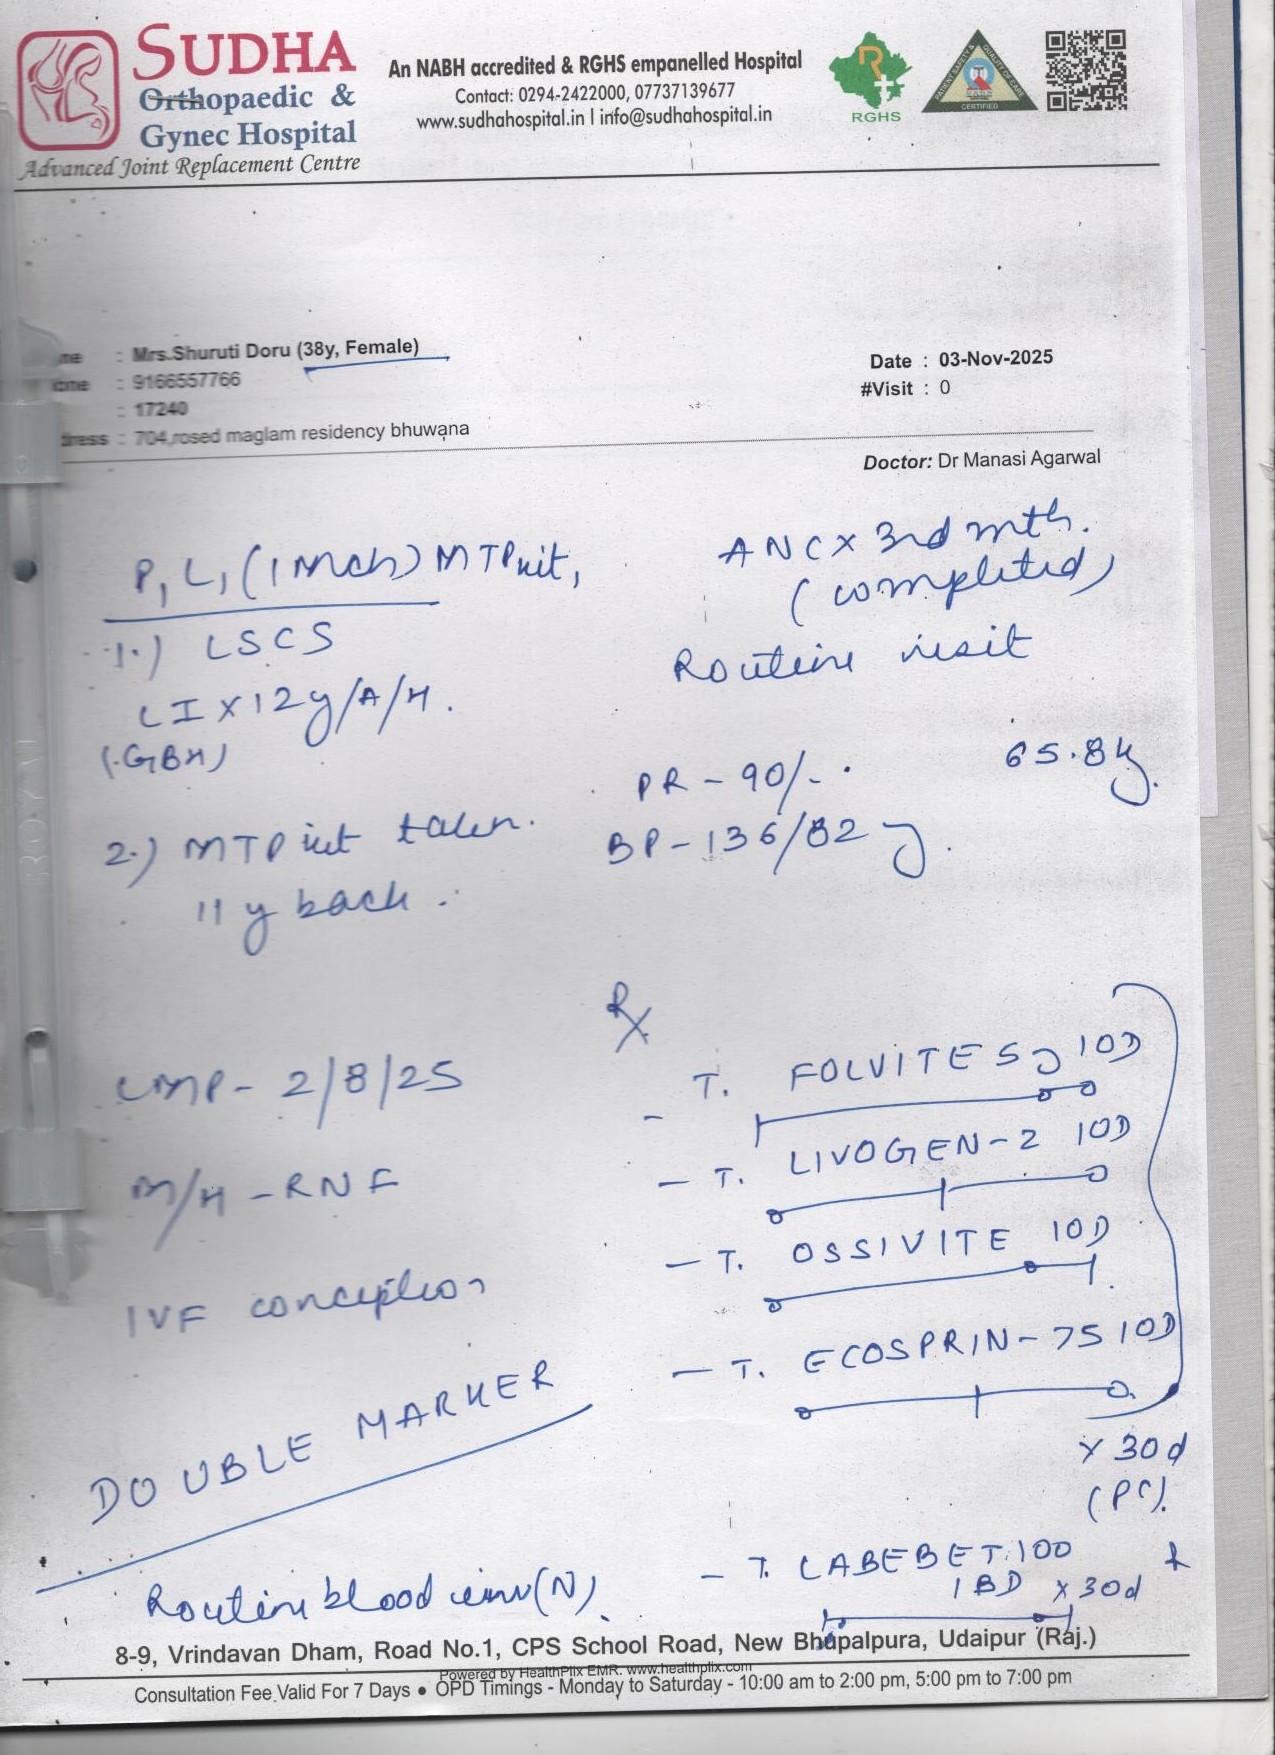 SUDHA
Orthopaedic &
Gynec Hospital
Advanced Joint Replacement Centre
An NABH accredited & RGHS empanelled Hospital
Contact: 0294-2422000, 07737139677
www.sudhahospital.in | info@sudhahospital.in
RGHS
CERTIFIED
me : Mrs.Shuruti Doru (38y, Female)
: 9166557766
: 17240
dress : 704,rosed maglam residency bhuwana
Date : 03-Nov-2025
#Visit : 0
Doctor: Dr Manasi Agarwal
P1 L1 (1 MCh) MTP kit,
1.) LSCS
LI x 12y/A/H.
2.) MTP kit taken.
11 y back.
ANC x 3rd mth.
(completed)
Routine visit
PR - 90/-
65.8 kg.
BP - 136/82
LMP - 2/8/25
M/H - RNF
IVF conception
DOUBLE MARKER
Routine blood inv (N)
Rx
- T. FOLVITE 5 1OD
- T. LIVOGEN-Z 1OD
- T. OSSIVITE 1OD
- T. ECOSPRIN-75 1OD
x 30d
(PC).
- T. LABEBET 100
1 BD x 30d
8-9, Vrindavan Dham, Road No.1, CPS School Road, New Bhupalpura, Udaipur (Raj.)
Powered by HealthPlix EMR. www.healthplix.com
Consultation Fee Valid For 7 Days • OPD Timings - Monday to Saturday - 10:00 am to 2:00 pm, 5:00 pm to 7:00 pm